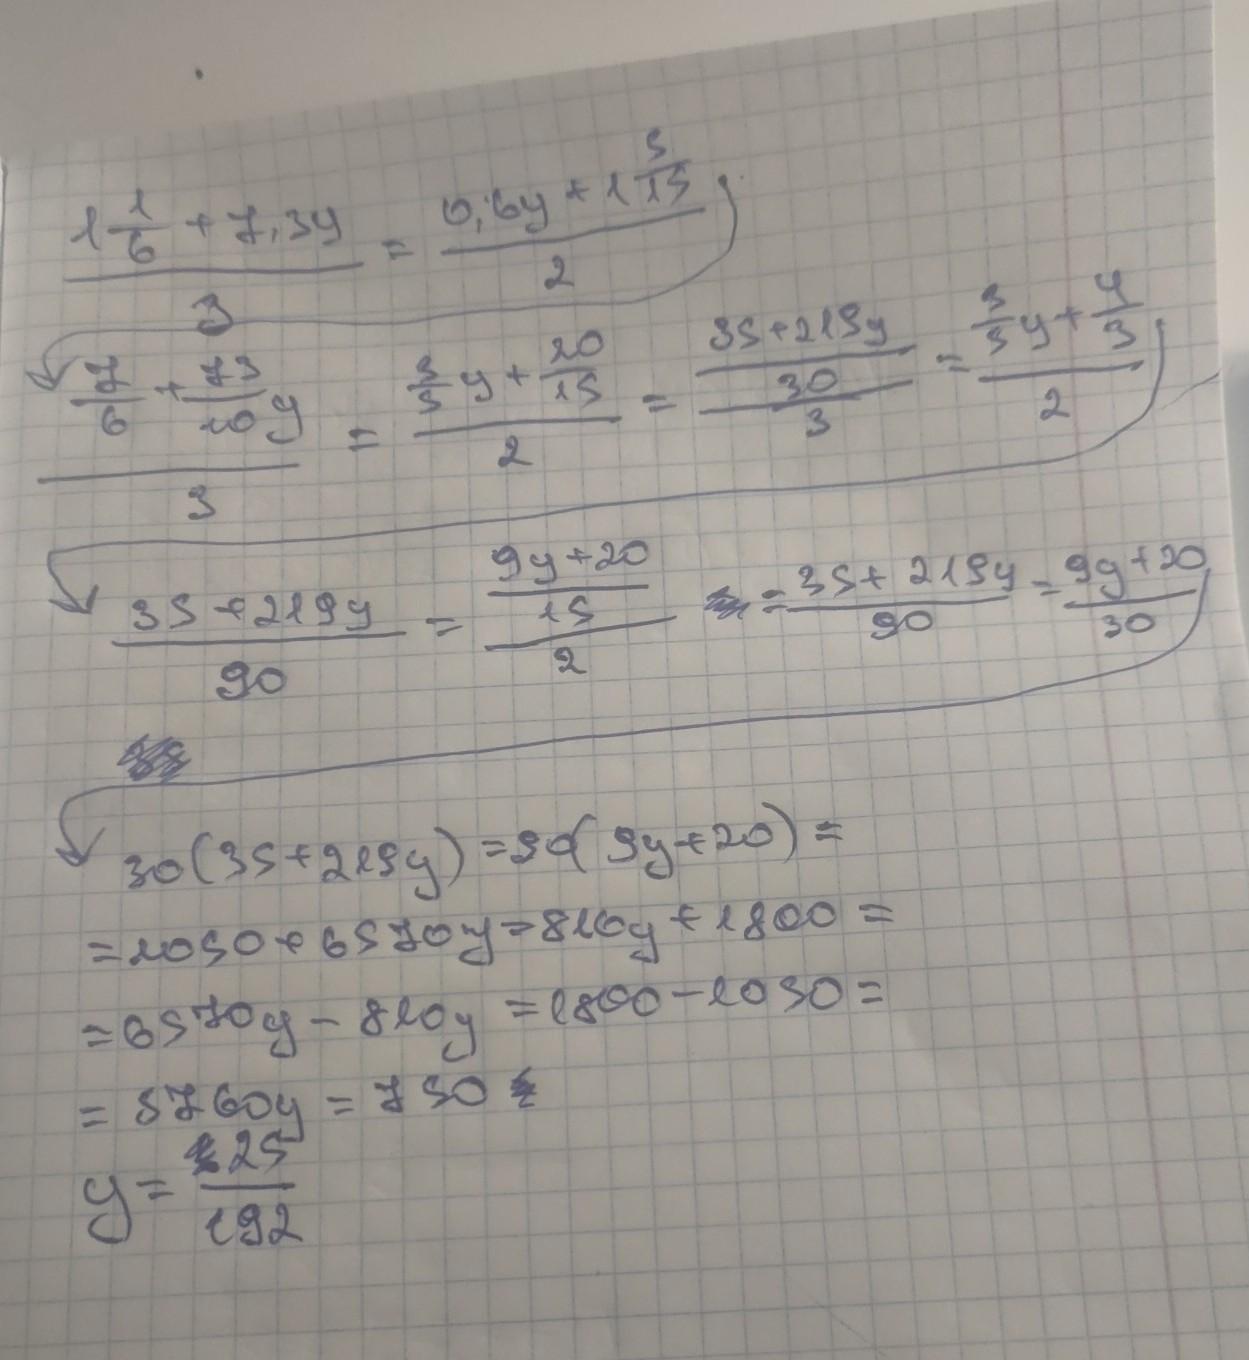 (1 1/6 + 7,3y)/3 = (0,6y + 1 5/15)/2
(7/6 + 73/10 y)/3 = (3/5 y + 20/15)/2 = ((35+219y)/30)/3 = (3/5 y + 4/3)/2
(35+219y)/90 = ((9y+20)/15)/2 = (35+219y)/90 = (9y+20)/30
30(35+219y) = 90(9y+20) =
= 1050 + 6570y = 810y + 1800 =
= 6570y - 810y = 1800 - 1050 =
= 5760y = 750
y = 25/192